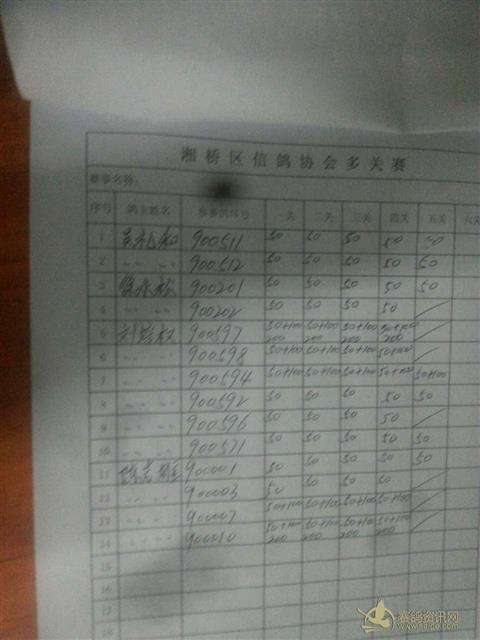 湘桥区信鸽协会多关赛
赛事名称:
序号 鸽主姓名 参赛鸽环号 一关 二关 三关 四关 五关 六关
1 900511 50 50 50 50 50
2 〃 〃 900512 50 50 50 50 50
3 900201 50 50 50 50 50
4 〃 〃 900202 50 50 50 50 /
5 900597 50+100 200 50+100 200 50+100 200 50+100 200 /
6 〃 〃 900598 50+100 50+100 50+100 50+100 /
7 〃 〃 900594 50+100 50+100 50+100 50+100 50+100
8 〃 〃 900592 50 50 50 50 50
9 〃 〃 900596 50 50 50 50 /
10 〃 〃 900571 50 50 50 50 50
11 900001 50 50 50 50 50
12 〃 〃 900003 50 50 50 50 /
13 〃 〃 900007 50+100 50+100 50+100 50+100 /
14 〃 〃 900010 50+100 200 50+100 200 50+100 200 50+100 200 /
15
16
17
18
赛鸽资讯网